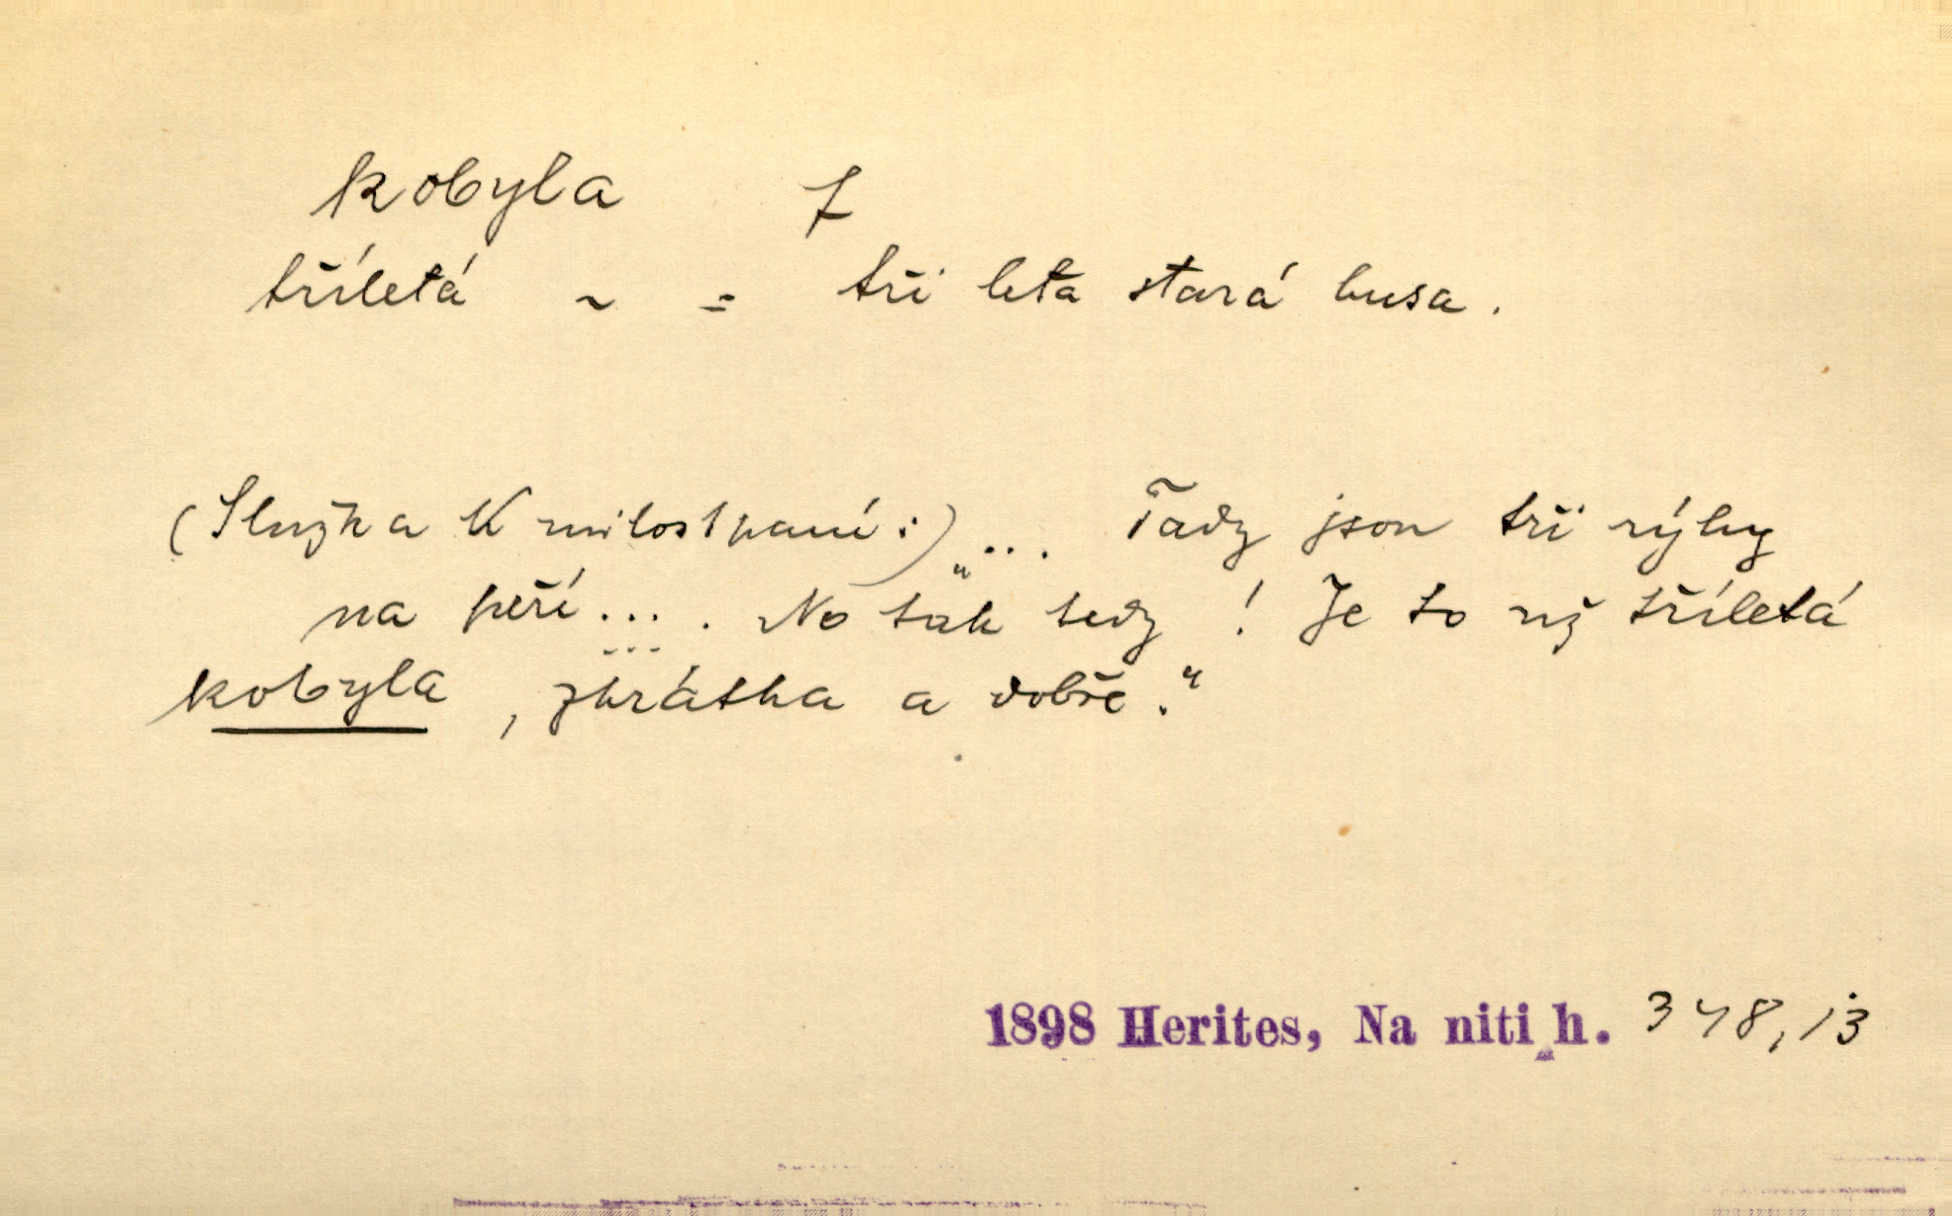 kobyla f
tříletá ~ = tři leta stará husa.
(Služka k milostpaní:) „... Tady jsou tři rýhy
na peří.... No tak tedy! Je to už tříletá
kobyla, zkrátka a dobře.“
1898 Herites, Na niti h. 348,13